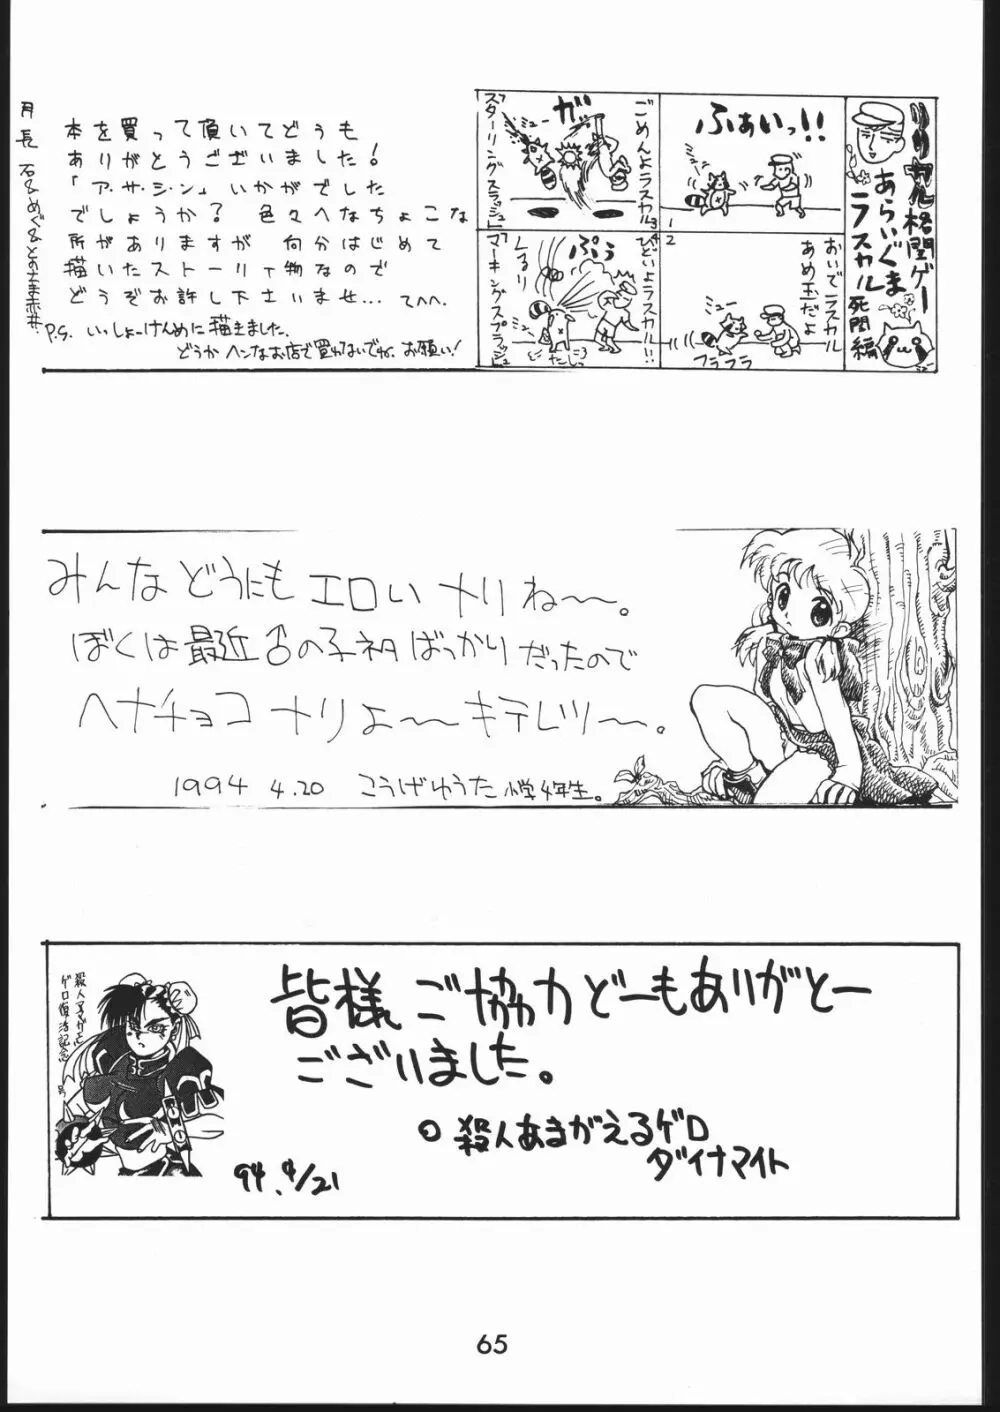 本を買って頂いてどうも
ありがとうございました!
「ア・サ・シ・ン」いかがでした
でしょうか? 色々へなちょこな
所がありますが 何分はじめて
描いたストーリィ物なので
どうぞお許し下さいませ… てへへ.
P.S. いっしょーけんめに描きました.
どうか ヘンなお店で買わないでね. お願い!
格闘ゲー
あらいぐま
ラスカル
死闘編
ふぁいっ!!
1
おいでラスカル
あめ玉だよ
ミュー
フラフラ
2
ごめんよラスカル
ガ
スターリングスラッシュ
3
ひどいよラスカル!!
ぷぅ
ミュー
マーキングスプラッシュ
4
みんな どうにも エロい ナリね〜〜。
ぼくは最近♂の子ネタばっかりだったので
ヘナチョコ ナリよ〜〜 キテレツ〜〜。
1994 4.20 こうげゆうた 小学4年生。
殺人アマガエル
ゲロ復活記念
皆様 ご協力どーもありがとー
ございました。
○ 殺人あまがえるゲロ
ダイナマイト
94. 4/21
65